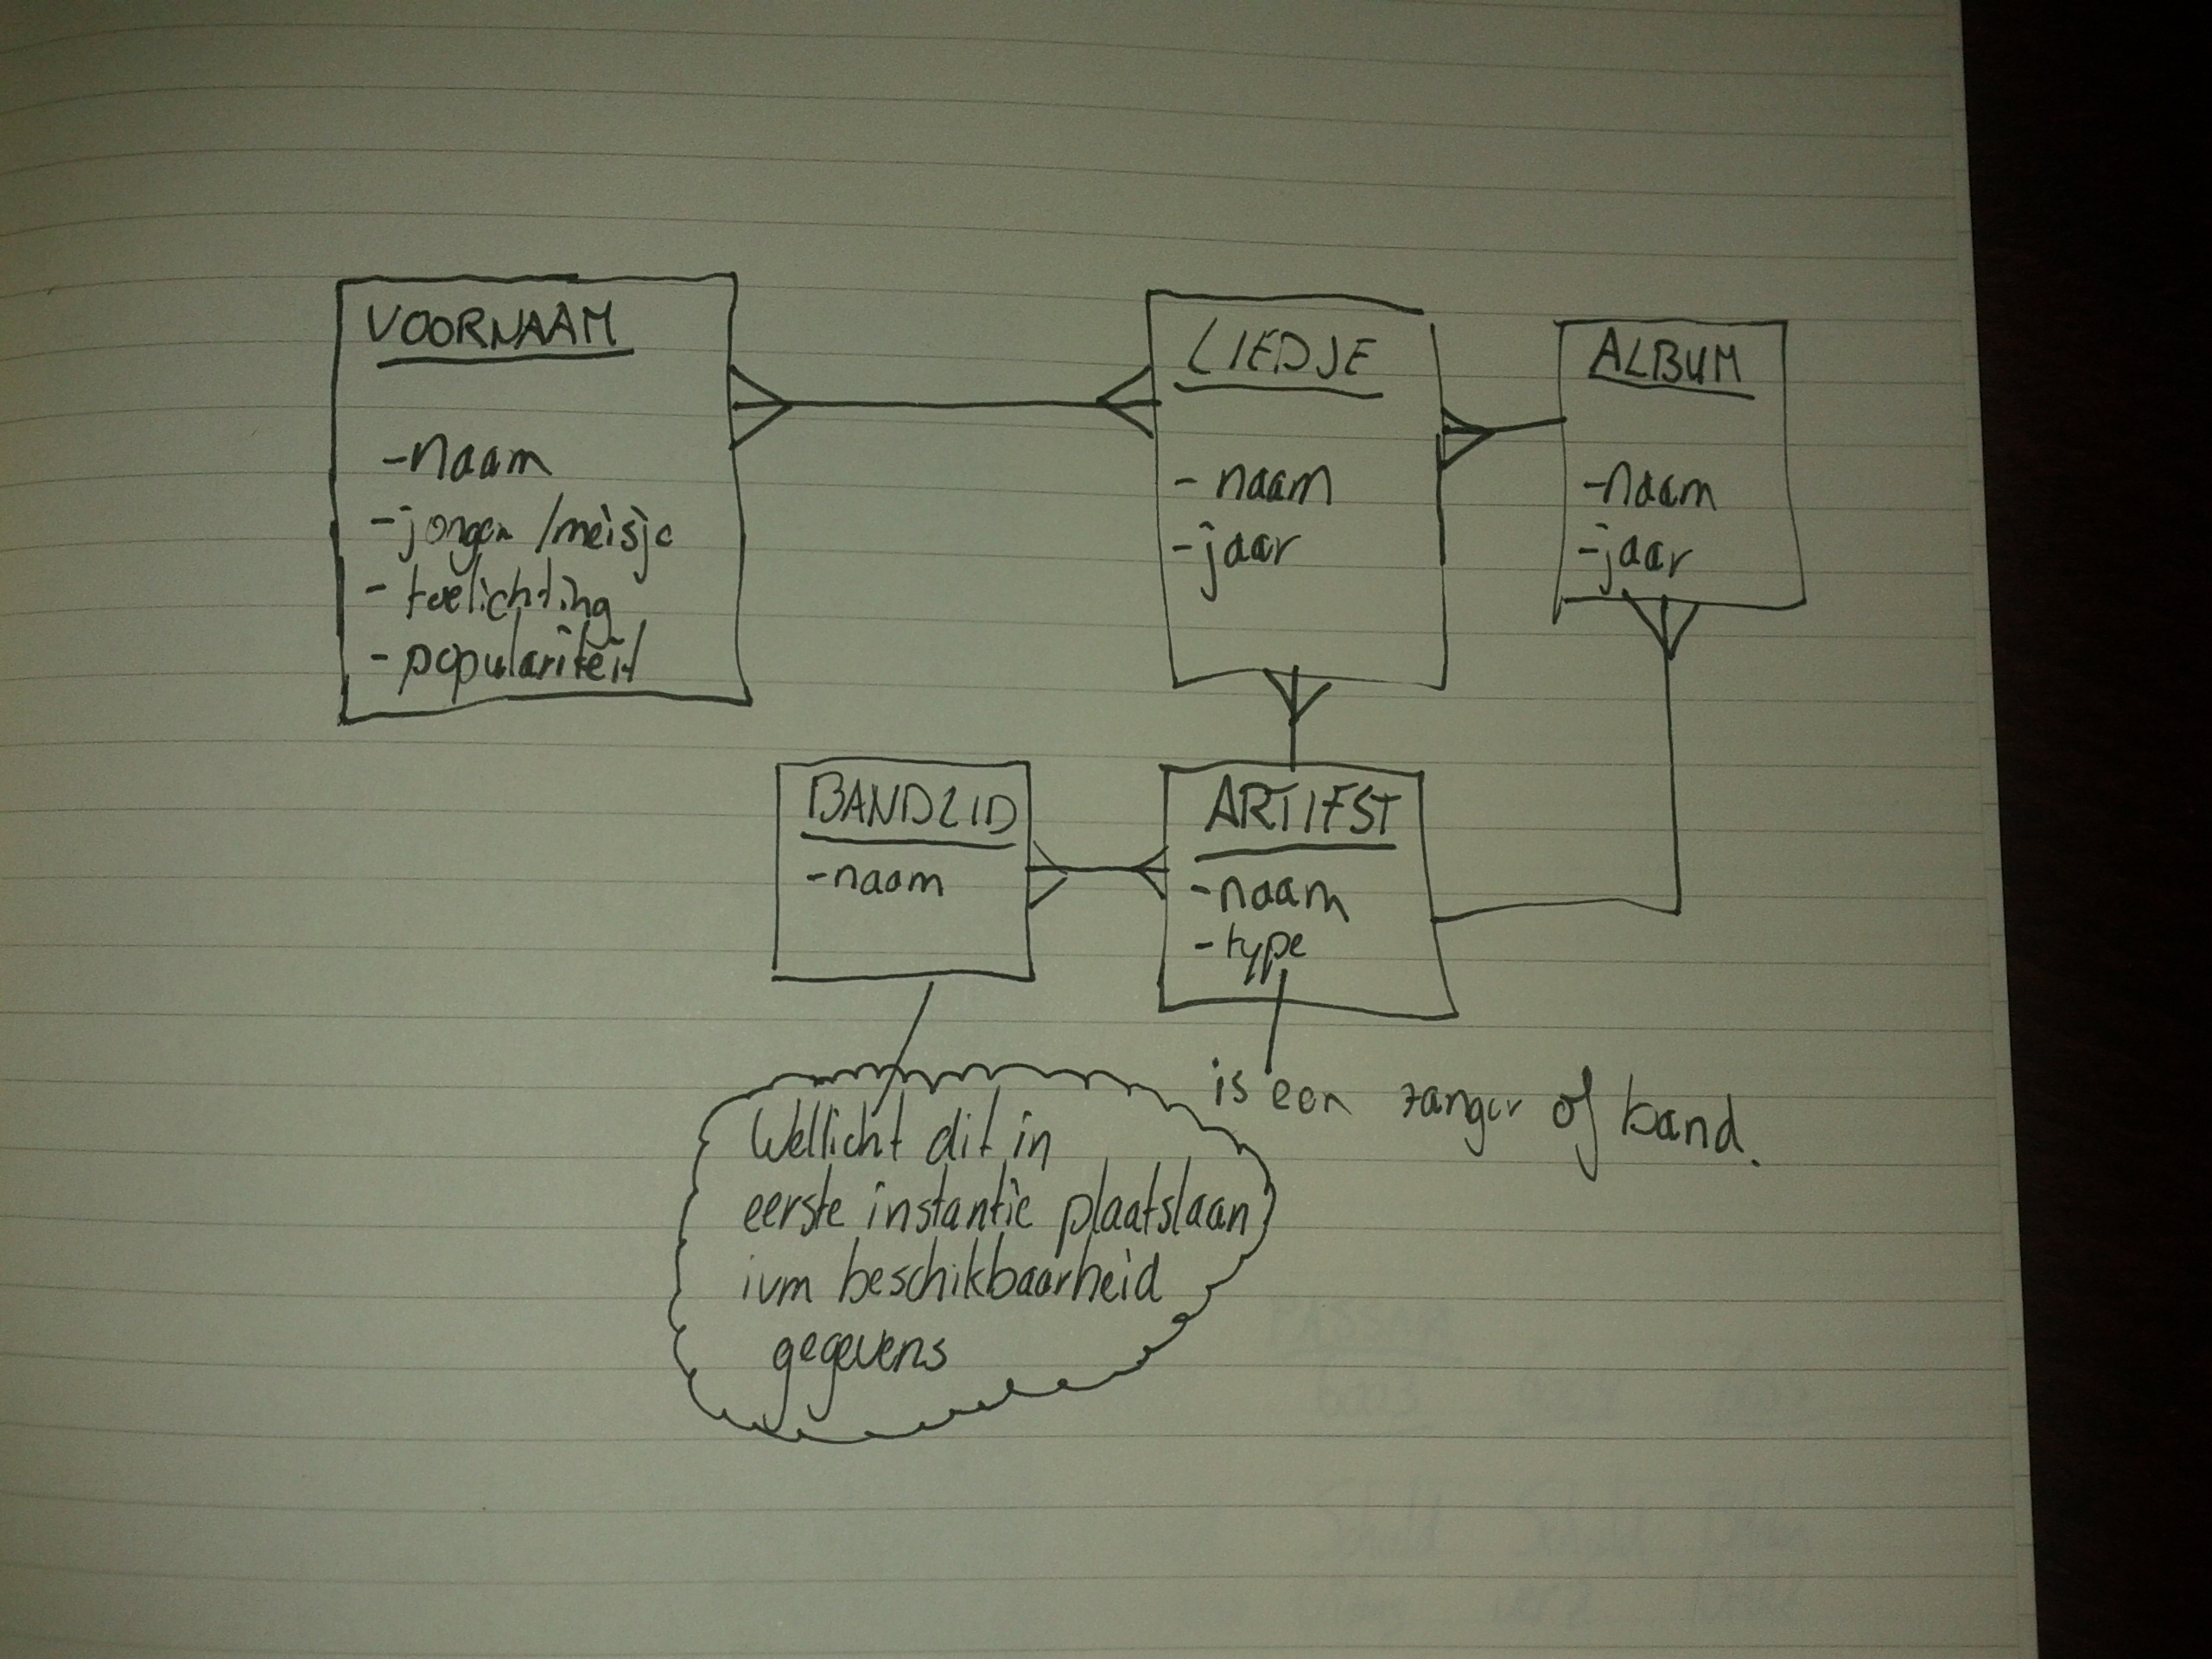 VOORNAAM
-naam
-jongen/meisje
- toelichting
- populariteit
LIEDJE
- naam
-jaar
ALBUM
-naam
-jaar
BANDLID
-naam
ARTIEST
-naam
-type
is een zanger of band.
Wellicht dit in
eerste instantie plaatslaan
ivm beschikbaarheid
gegevens